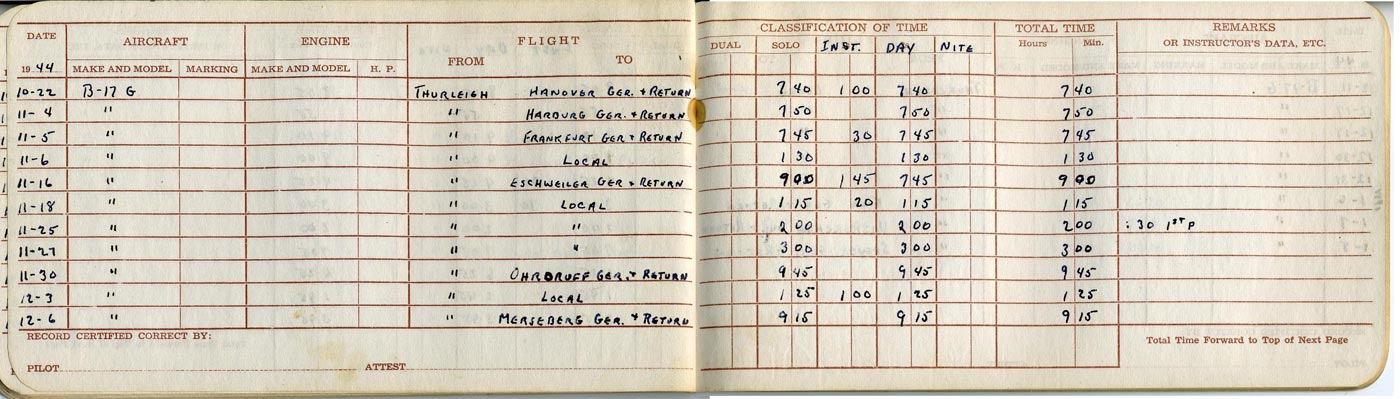 DATE AIRCRAFT ENGINE FLIGHT CLASSIFICATION OF TIME TOTAL TIME REMARKS
DUAL SOLO INST. DAY NITE Hours Min. OR INSTRUCTOR'S DATA, ETC.
1944 MAKE AND MODEL MARKING MAKE AND MODEL H. P. FROM TO
10-22 B-17 G THURLEIGH HANOVER GER. & RETURN 7 40 1 00 7 40 7 40
11-4 " " HARBURG GER. & RETURN 7 50 7 50 7 50
11-5 " " FRANKFURT GER & RETURN 7 45 30 7 45 7 45
11-6 " " LOCAL 1 30 1 30 1 30
11-16 " " ESCHWEILER GER & RETURN 9 00 1 45 7 45 9 00
11-18 " " LOCAL 1 15 20 1 15 1 15
11-25 " " " 2 00 2 00 2 00 : 30 1ST P
11-27 " " " 3 00 3 00 3 00
11-30 " " OHRDRUFF GER. & RETURN 9 45 9 45 9 45
12-3 " " LOCAL 1 25 1 00 1 25 1 25
12-6 " " MERSEBERG GER. & RETURN 9 15 9 15 9 15
RECORD CERTIFIED CORRECT BY: Total Time Forward to Top of Next Page
PILOT ATTEST